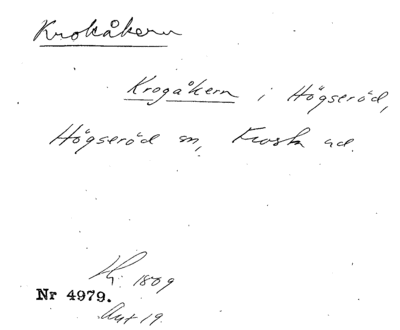 Krokåkern
Krogåkern i Högseröd,
Högseröd sn, Frosta hd.
1809
Nr 4979.
Akt 19.